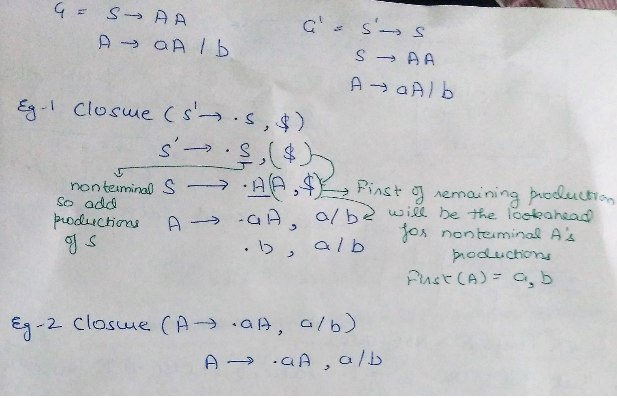 G = S → AA
A → aA / b
G' = S' → S
S → AA
A → aA / b
Eg-1 Closure ( S' → .S , $ )
S' → .S , ($)
nonterminal
so add
productions
of S
S → .A(A , $)
A → .aA , a/b
.b , a/b
First of remaining production
will be the lookahead
for nonterminal A's
productions
First (A) = a, b
Eg-2 Closure ( A → .aA , a/b )
A → .aA , a/b